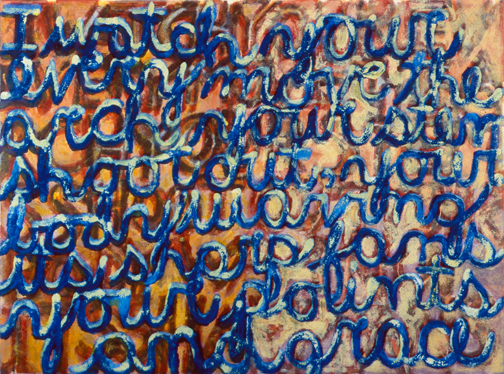 I watch your
every move the
arch your stem
shoot out, your
body waving
its sharp fans
your points
and grace